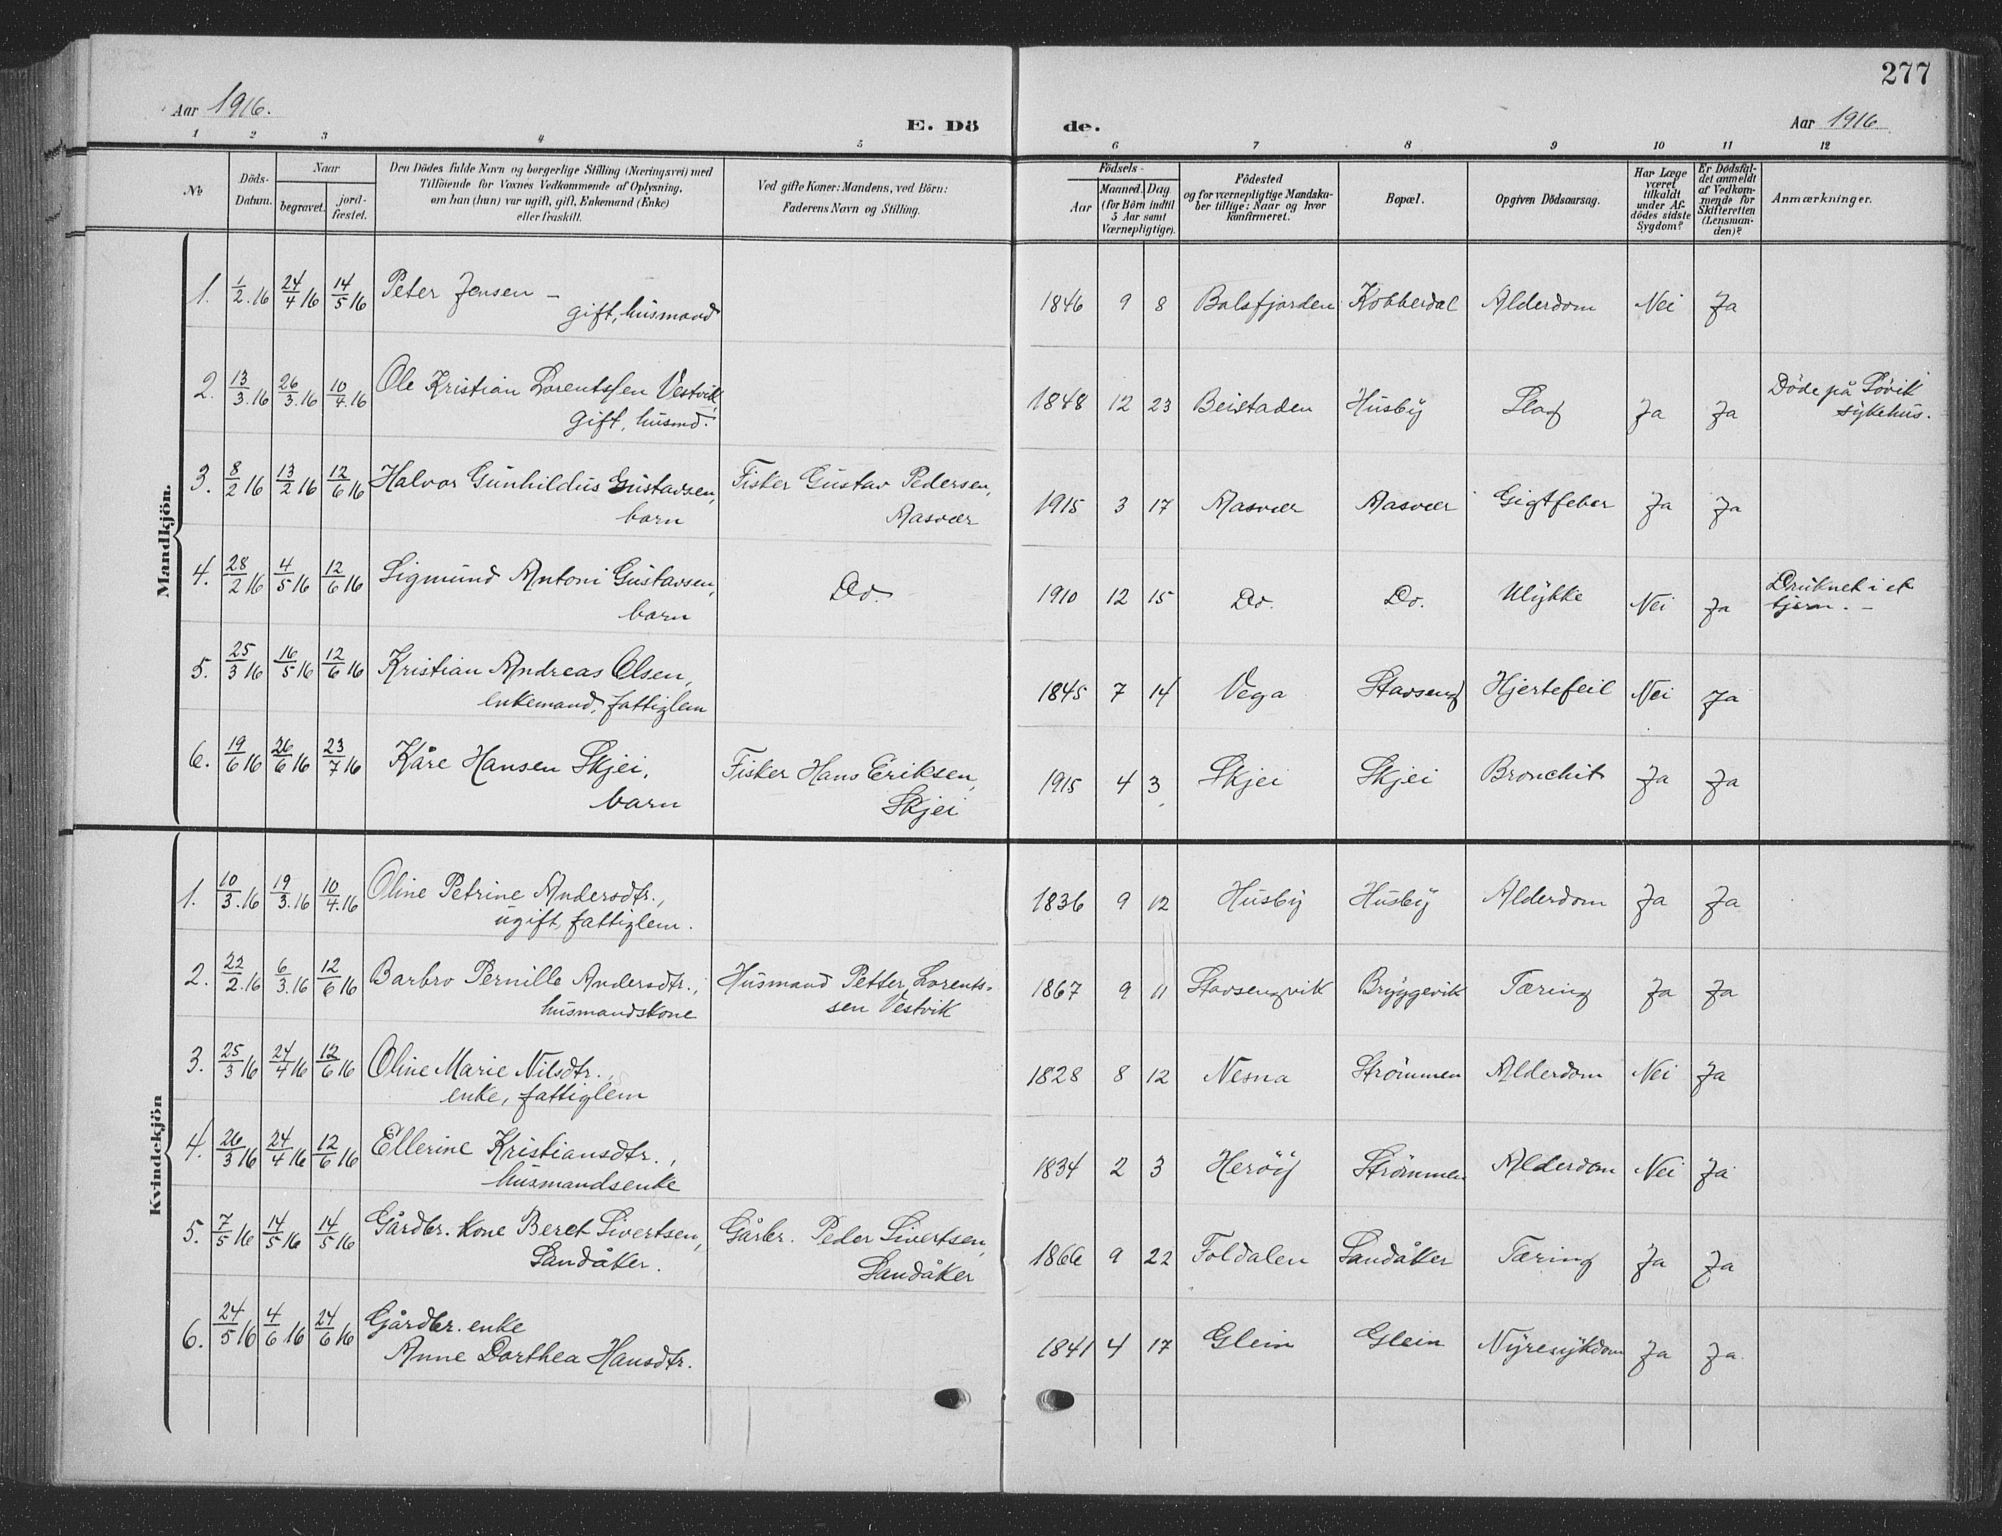 277
Aar 1916.
E. Dö de.
Aar 1916
1 2 3 4 5 6 7 8 9 10 11 12
No
Döds-Datum.
Naar
begravet.
jord-fæstet.
Den Dödes fulde Navn og borgerlige Stilling (Næringsvei) med
Tilföiende for Voxnes Vedkommende af Oplysning,
om han (hun) var ugift, gift, Enkemand (Enke)
eller fraskilt.
Ved gifte Koner: Mandens, ved Börn:
Faderens Navn og Stilling.
Födsels-
Aar
Maaned. Dag.
(for Börn indtil
5 Aar samt
Værnepligtige).
Födested
og for værnepligtige Mandska-
ber tillige: Naar og hvor
konfirmeret.
Bopæl.
Opgiven Dödsaarsag.
Har Læge
været
tilkaldt
under Af-
dödes sidste
Sygdom?
Er Dödsfal-
det anmeldt
af Vedkom-
mende for
Skifteretten
(Lensman-
den)?
Anmærkninger.
Mandkjön.
1. 1/2.16 24/4 16 14/5 16 Peter Jensen – 1846 9 8 Balsfjorden Kobberdal Alderdom Nei Ja
gift, husmand
2. 13/3.16 26/3.16 10/4.16 Ole Kristian Lorentssen Vestvik, 1848 12 23 Beistaden Husby Slag Ja Ja Döde på Sövik
gift, husmd. sykehus.
3. 8/2 16 13/2 16 12/6 16 Halvor Gunhildus Gustavsen, Fisker Gustav Pedersen, 1915 3 17 Aasvær Aasvær Gigtfeber Ja Ja
barn Aasvær
4. 28/2 16 4/5 16 12/6 16 Sigmund Antoni Gustavsen, Do. 1910 12 15 Do. Do. Ulykke Nei Ja Druknet i et
barn tjern. –
5. 25/3 16 16/5 16 12/6 16 Kristian Andreas Olsen, 1845 7 14 Vega Stavseng Hjertefeil Nei Ja
enkemand, fattiglem
6. 19/6 16 26/6 16 23/7 16 Kåre Hansen Skjei, Fisker Hans Eriksen, 1915 4 3 Skjei Skjei Bronchit Ja Ja
barn Skjei
Kvindekjön
1. 10/3.16 19/3.16 10/4.16 Oline Petrine Andersdtr., 1836 9 12 Husby Husby Alderdom Ja Ja
ugift, fattiglem.
2. 22/2.16 6/3.16 12/6 16 Barbro Pernille Andersdtr., Husmand Petter Lorents- 1867 9 11 Stavsengvik Bryggevik Tæring Ja Ja
husmandskone sen Vestvik
3. 25/3 16 24/4 16 12/6 16 Oline Marie Nilsdtr., 1828 8 12 Nesna Strömmen Alderdom Nei Ja
enke, fattiglem
4. 26/3 16 24/4 16 12/6 16 Ellerine Kristiansdtr., 1834 2 3 Heröy Strömmen Alderdom Nei Ja
husmandsenke
5. 7/5 16 14/5 16 14/5 16 Gårdbr. kone Beret Sivertsen, Gårbr. Peder Sivertsen, 1866 9 22 Foldalen Sandåker Tæring Ja Ja
Sandåker. Sandåker
6. 24/5 16 4/6 16 24/6 16 Gårdbr. enke 1841 4 17 Glein Glein Nyresykdom Ja Ja
Anne Dorthea Hansdtr.